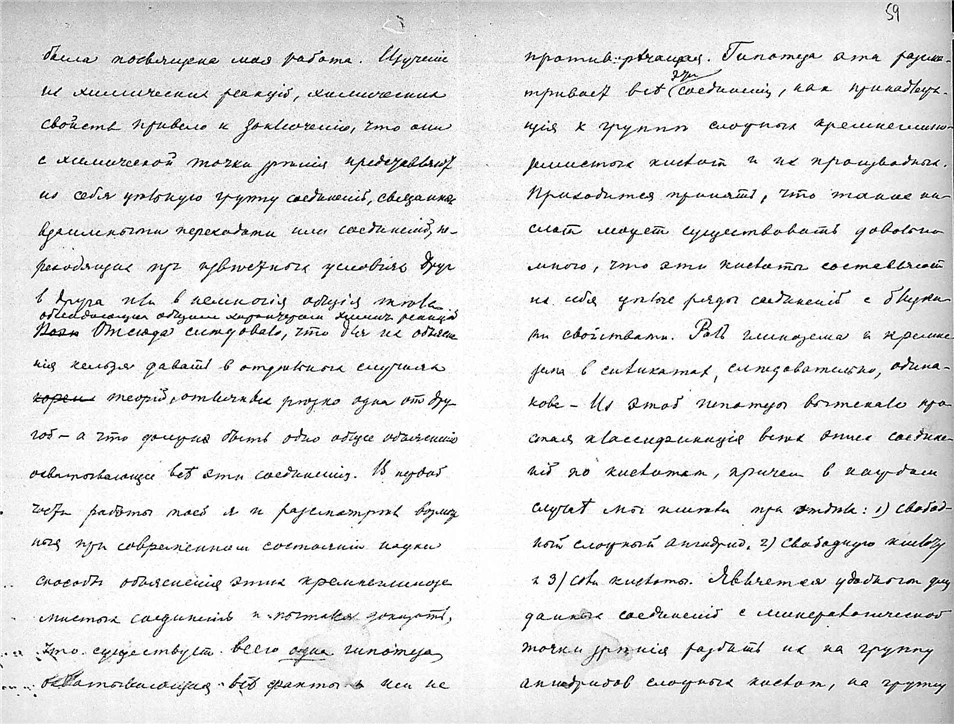 была посвящена моя работа. Изученiе
их химических реакцiй, химических
свойств привело к заключенiю, что они
с химической точки зрѣнiя представляют
из себя цѣльную группу соединенiй, связанных
взаимными переходами или соединенiй, пе-
реходящих при извѣстных условiях друг
в друга или в немногiя общiя
обладающих общим характером химич. реакцiй
Отсюда слѣдовало, что для их объясне-
нiя нельзя давать в отдѣльных случаях
теорiй, отличных рѣзко одна от дру-
гой – а что должно быть одно общее объясненiе
охватывающее всѣ эти соединенiя. В первой
части работы моей я и разсматривал возмож-
ные при современном состоянiи науки
способы объясненiя этих кремнеглинозе-
мистых соединенiй и пытался доказать,
что существует всего одна гипотеза,
охватывающая всѣ факты и им не
59
противорѣчащая. Гипотеза эта разсма-
тривает всѣ эти соединенiя, как принадлежа-
щiя к группѣ сложных кремнеглино-
земистых кислот и их производных.
Приходится принять, что таких ки-
слот может существовать довольно
много, что эти кислоты составляют
из себя цѣлые ряды соединенiй с близки-
ми свойствами. Роль глинозема и кремне-
зема в силикатах, слѣдовательно, одина-
кова – Из этой гипотезы вытекала про-
стая классификацiя всѣх этих соедине-
нiй по кислотам, причем в каждом
случаѣ мы имѣли три отдѣла: 1) свобод-
ный сложный ангидрид, 2) свободную кислоту
и 3) соли кислоты. Является удобным для
данных соединенiй с минералогической
точки зрѣнiя разбить их на группу
ангидридов сложных кислот, на группу